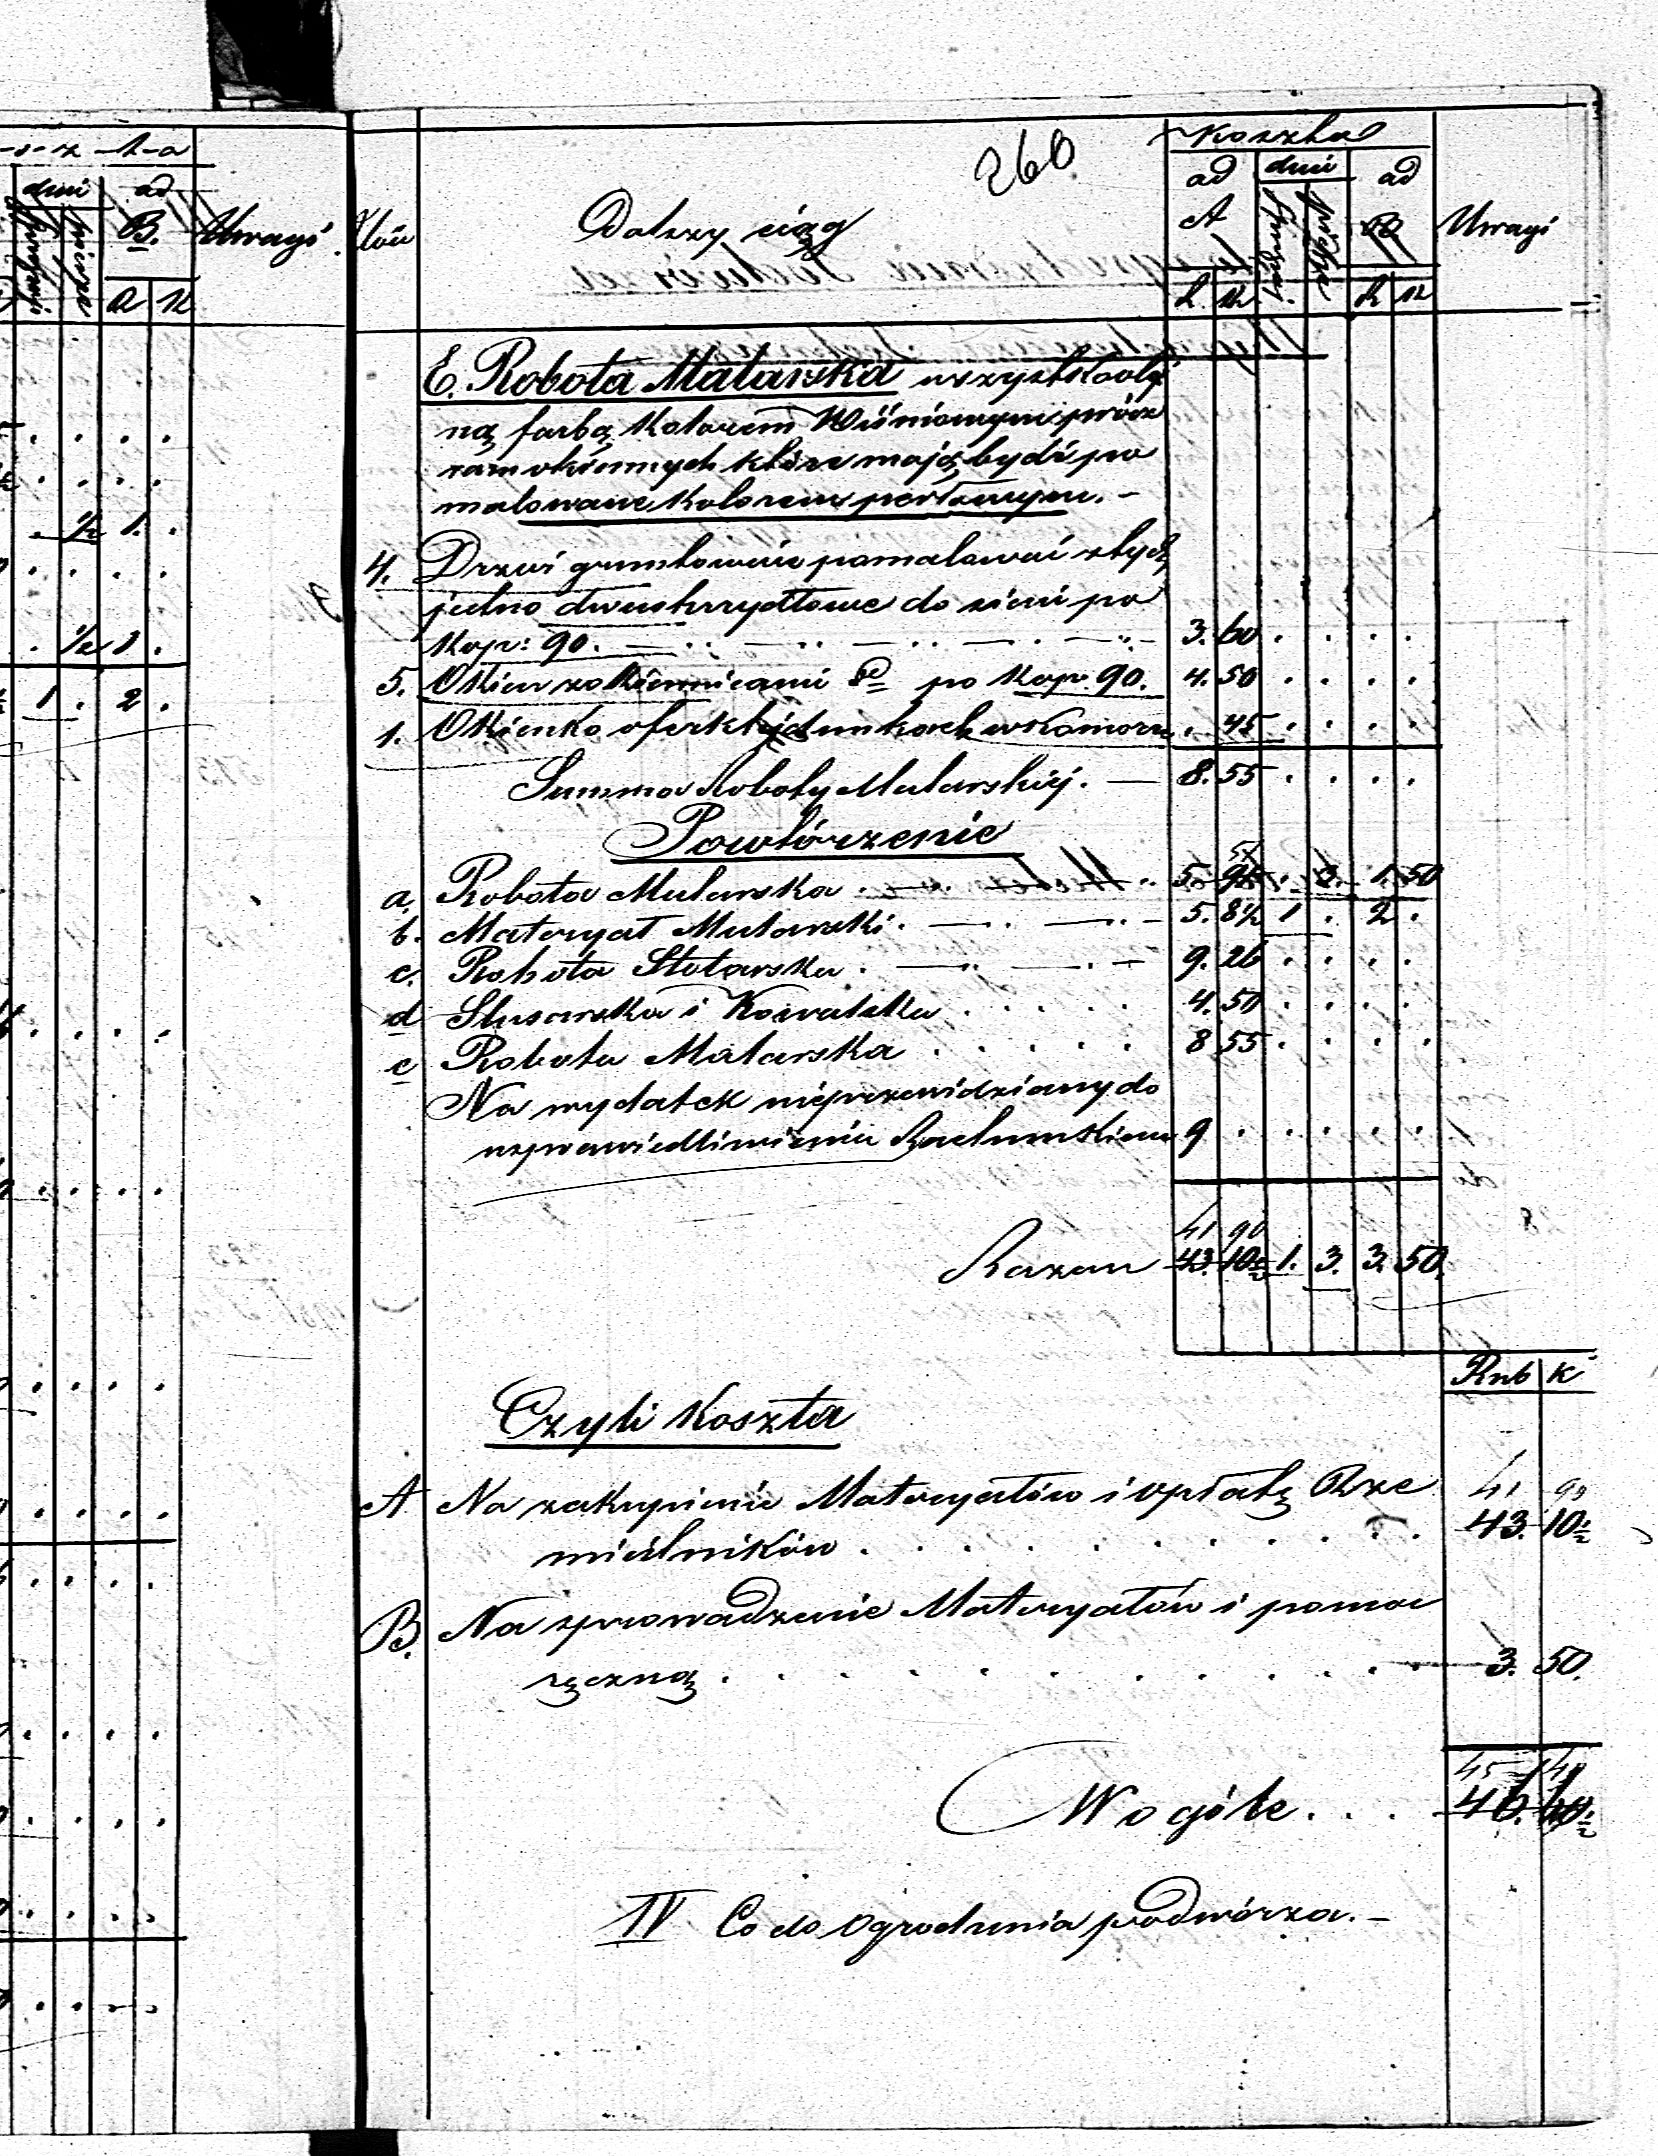 dni
ad
B.
Uwagi
1/2 1.
1/2 1.
1. 2.
260
Dalszy ciąg
Koszta
ad A
dni
ad B
Uwagi
R. K.
R K
E. Robota Malarska wszystko oley
ną farbą Kolorem Wiśniowym prócz
ram okiennych które mają bydź po
malowane Kolorem perłowym. -
4. Drzwi gruntownie pomalować z tych
jedno dwuskrzydłowe do sieni po
Kop: 90. 3. 60
5. Okien z okiennicami po Kop. 90. 4. 50
1. Okienko w Komorze . 45
Summa Roboty Malarskiej. 8. 55
Powtórzenie
a. Robota Mularska 5. 3. 1. 50
b. Materyał Mularski. 5. 8½ 1 . 2 .
c. Robota Stolarska. 9. 26
d Slusarska i Kowalska 4. 50
e Robota Malarska 8 55
Na wydatek nieprzewidziany do
usprawiedliwienia Rachunkiem 9
41 90
Razem 43. 10½ 1. 3. 3. 50.
Rub K
Czyli Koszta
41 90
A Na zakupienie Materyałów i opłatę Rze
mieślników 43. 10½
B. Na sprowadzenie Materyałów i pomoc
ręczną 3. 50.
45 40
W ogóle . . . 46. 60½
IV Co do Ogrodzenia podwórza. -